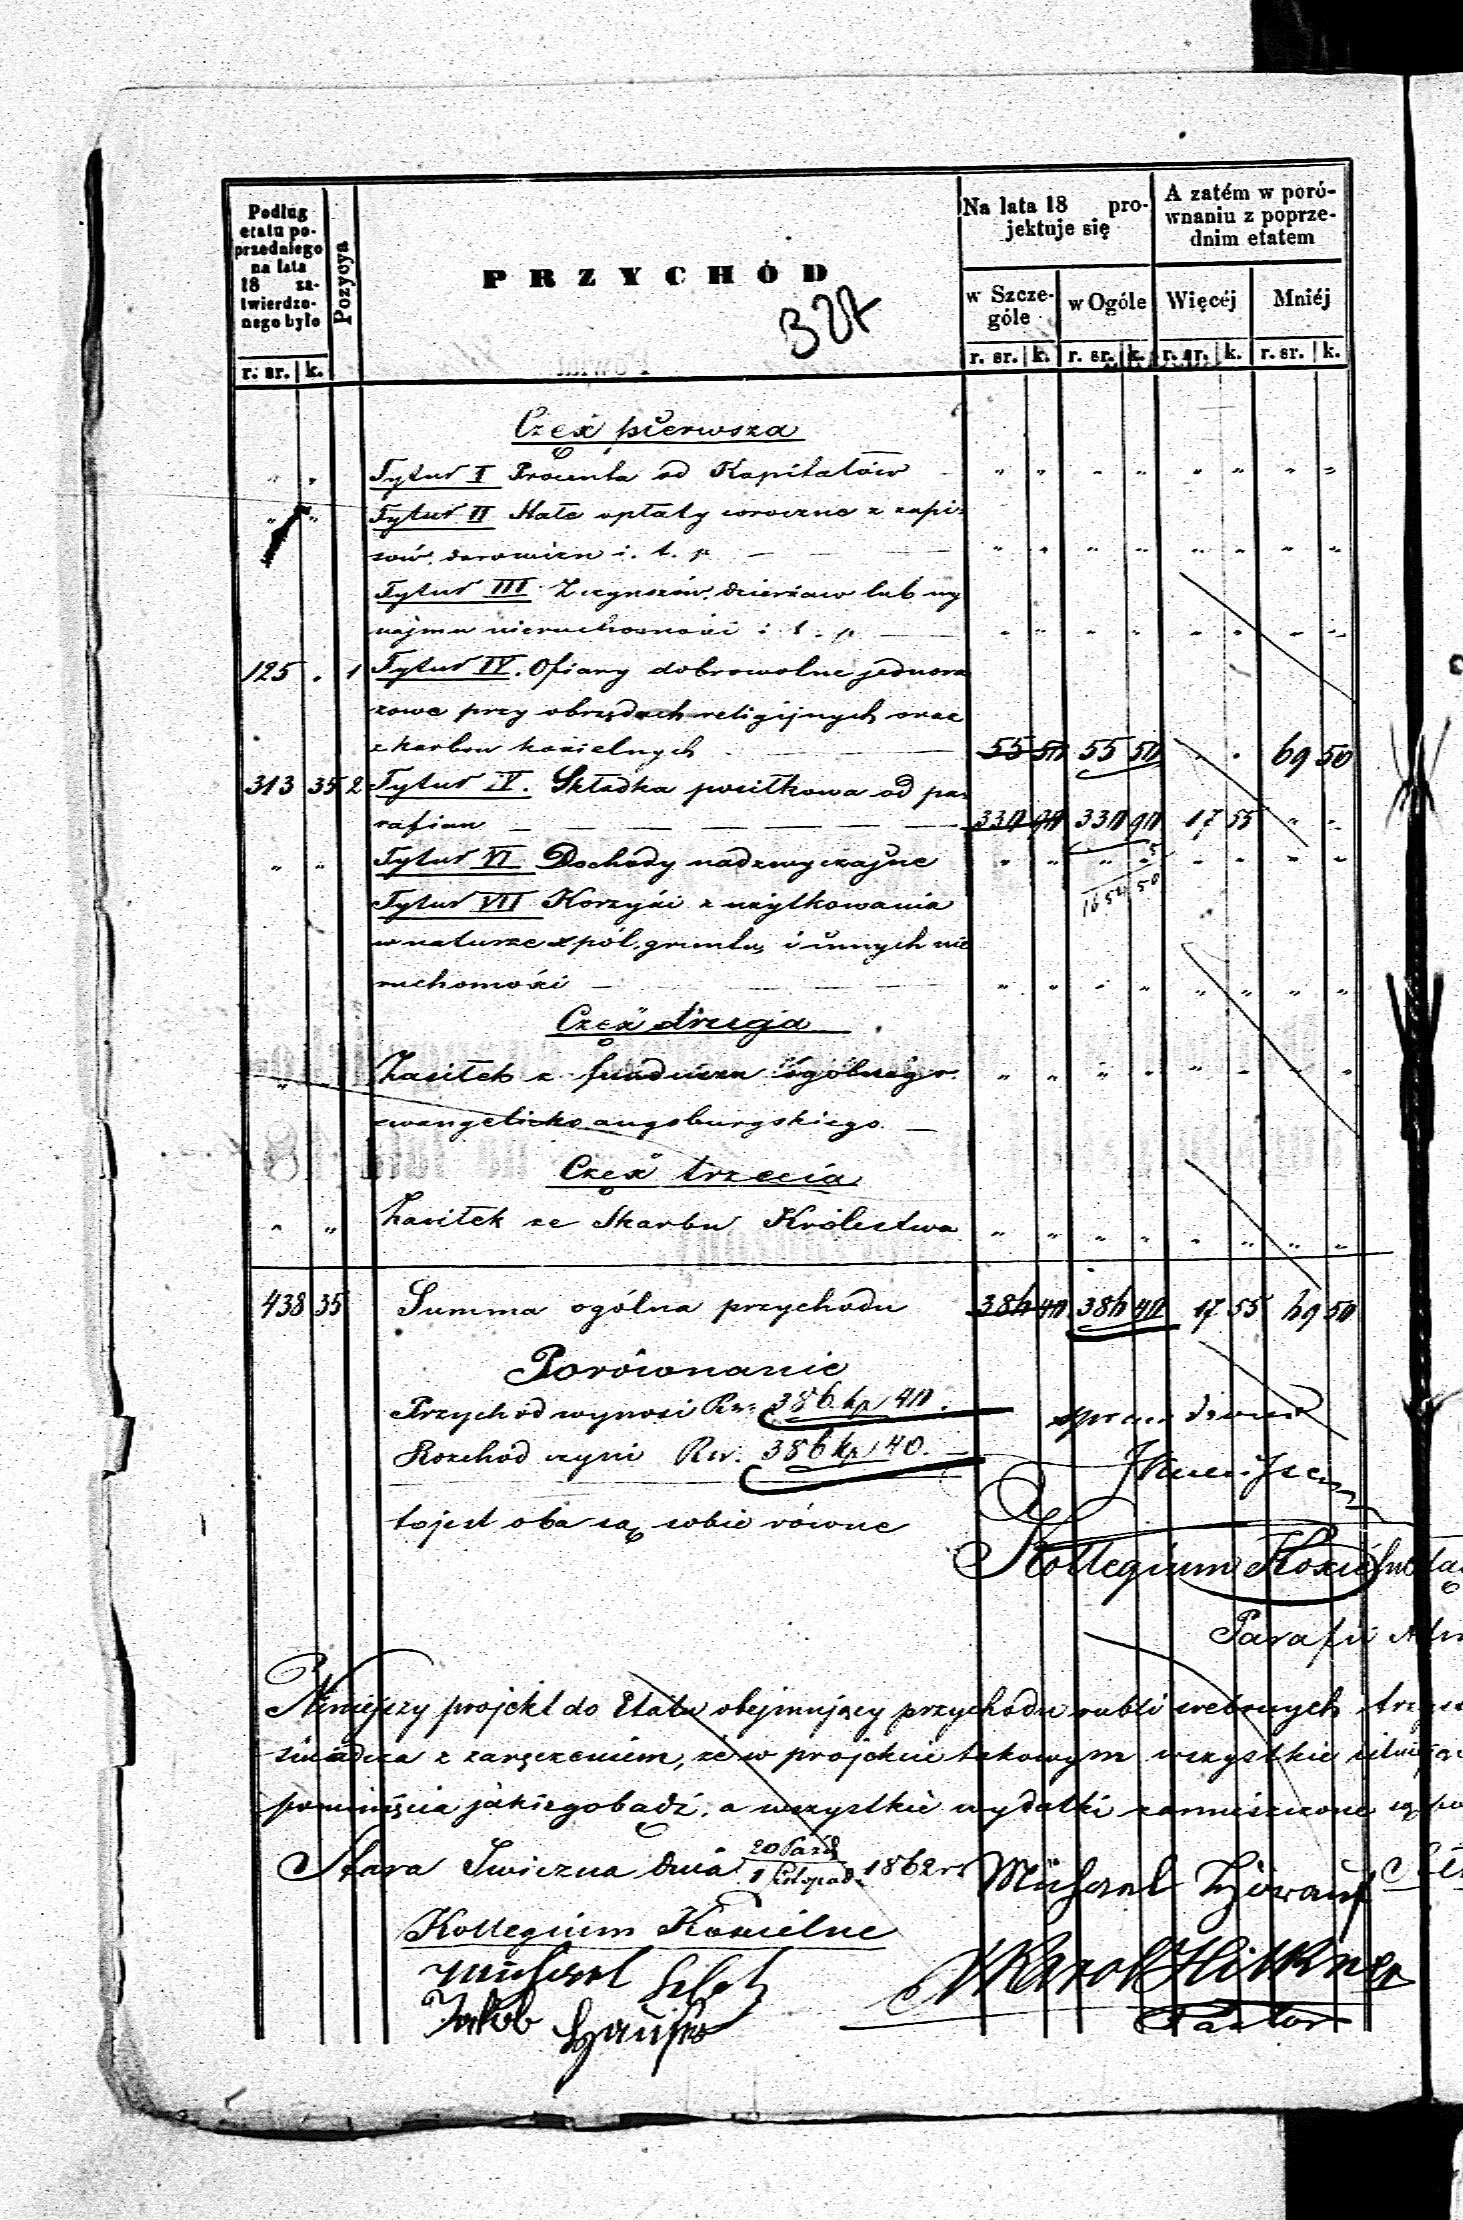 Podług etatu poprzedniego na lata 18 zatwierdzonego było
Pozycya
PRZYCHÓD
327
Na lata 18 projektuje się
A zatém w porównaniu z poprzednim etatem
w Szczególe
w Ogóle
Więcéj
Mniéj
r. sr. k. r. sr. k. r. sr. k. r. sr. k. r. sr. k.
Część pierwsza
„ „ Tytuł I Procenta od Kapitałów „ „ „ „ „ „ „ „
„ „ Tytuł II Stałe opłaty coroczne z zapi-
sów, darowizn i. t. p „ „ „ „ „ „ „ „
Tytuł III Z czynszów, dzierżaw lub wy
najmu nieruchomości i t. p „ „ „ „ „ „ „ „
125 . 1 Tytuł IV. Ofiary dobrowolne jednora
zowe przy obrzędach religijnych oraz
z karbon kościelnych 55 50 55 50 . . 69 50
313 35 2 Tytuł V. Składka posiłkowa od pa-
rafian 330 90 330 90 17 55 „ „
„ „ Tytuł VI Dochody nadzwyczajne „ „ „ „ „ „ „ „
Tytuł VII Korzyści z użytkowania
w naturze z pól, gruntu, i innych nie
ruchomości „ „ „ „ „ „ „ „
Część druga
„ Zasiłek z funduszu ogólnego „ „ „ „ „ „ „ „
ewangelicko augsburgskiego.
Część trzecia
„ „ Zasiłek ze Skarbu Królestwa „ „ „ „ „ „ „ „
438 35 Summa ogólna przychodu 386 40 386 40 17 55 69 50
Porównanie
Przychód wynosi Rsr. 386 kp 40.
Rozchód czyni Rsr. 386 kp 40.
to jest oba są sobie równe
sprawdzono
Kollegium Koście
Parafii
Niniejszy projekt do Etatu obejmujący przychodu rubli srebrnych
świadcza z zaręczeniem, że w projekcie takowym wszystkie
pominięcia jakiegobądź, a wszystkie wydatki zamieszczone są
Stara Iwiczna dnia 20 Paźdź / 1 Listopada 1862 r.
Kollegium Kościelne
Michael
Jakob
Karol
Pastor